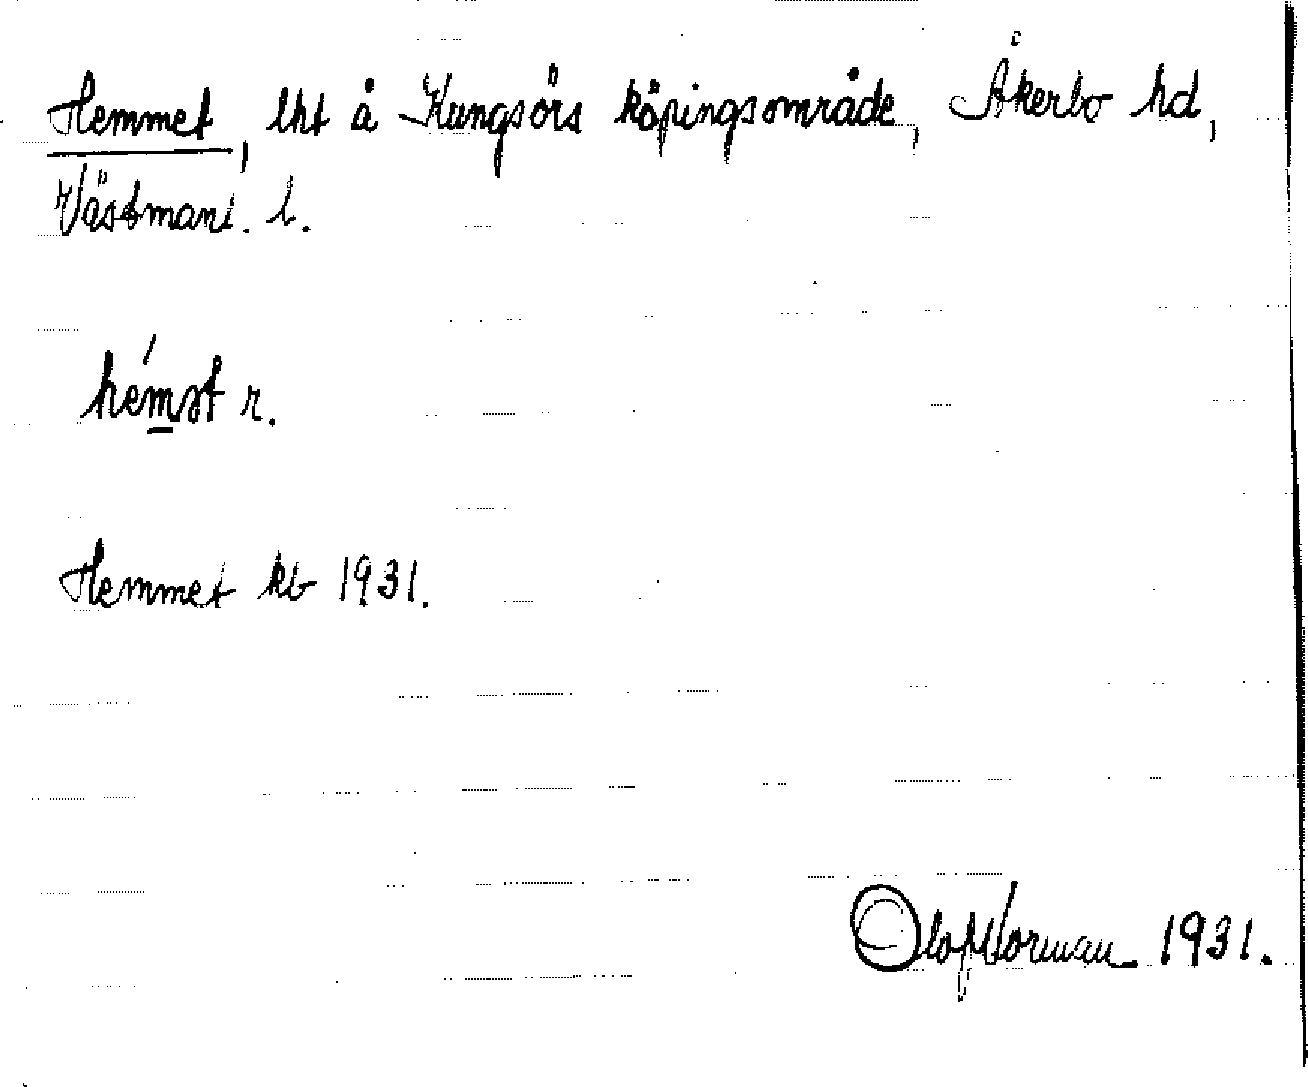 Hemmet, lht å Kungsörs köpingsområde, Åkerbo hd,
Västmanl. l.
hémst r.
Hemmet kb 1931.
Olof Norman 1931.